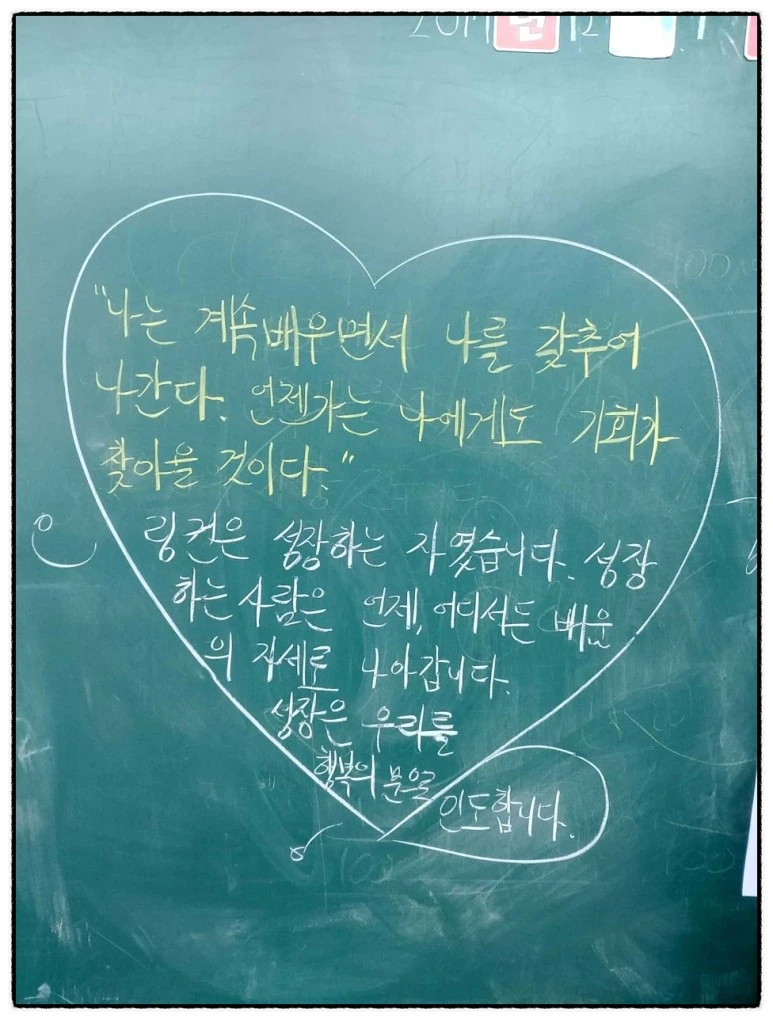 2017년 12
"나는 계속 배우면서 나를 갖추어
나간다. 언젠가는 나에게도 기회가
찾아올 것이다."
링컨은 성장하는 자였습니다. 성장
하는 사람은 언제, 어디서든 배움
의 자세로 나아갑니다.
성장은 우리를
행복의 문으로
인도합니다.